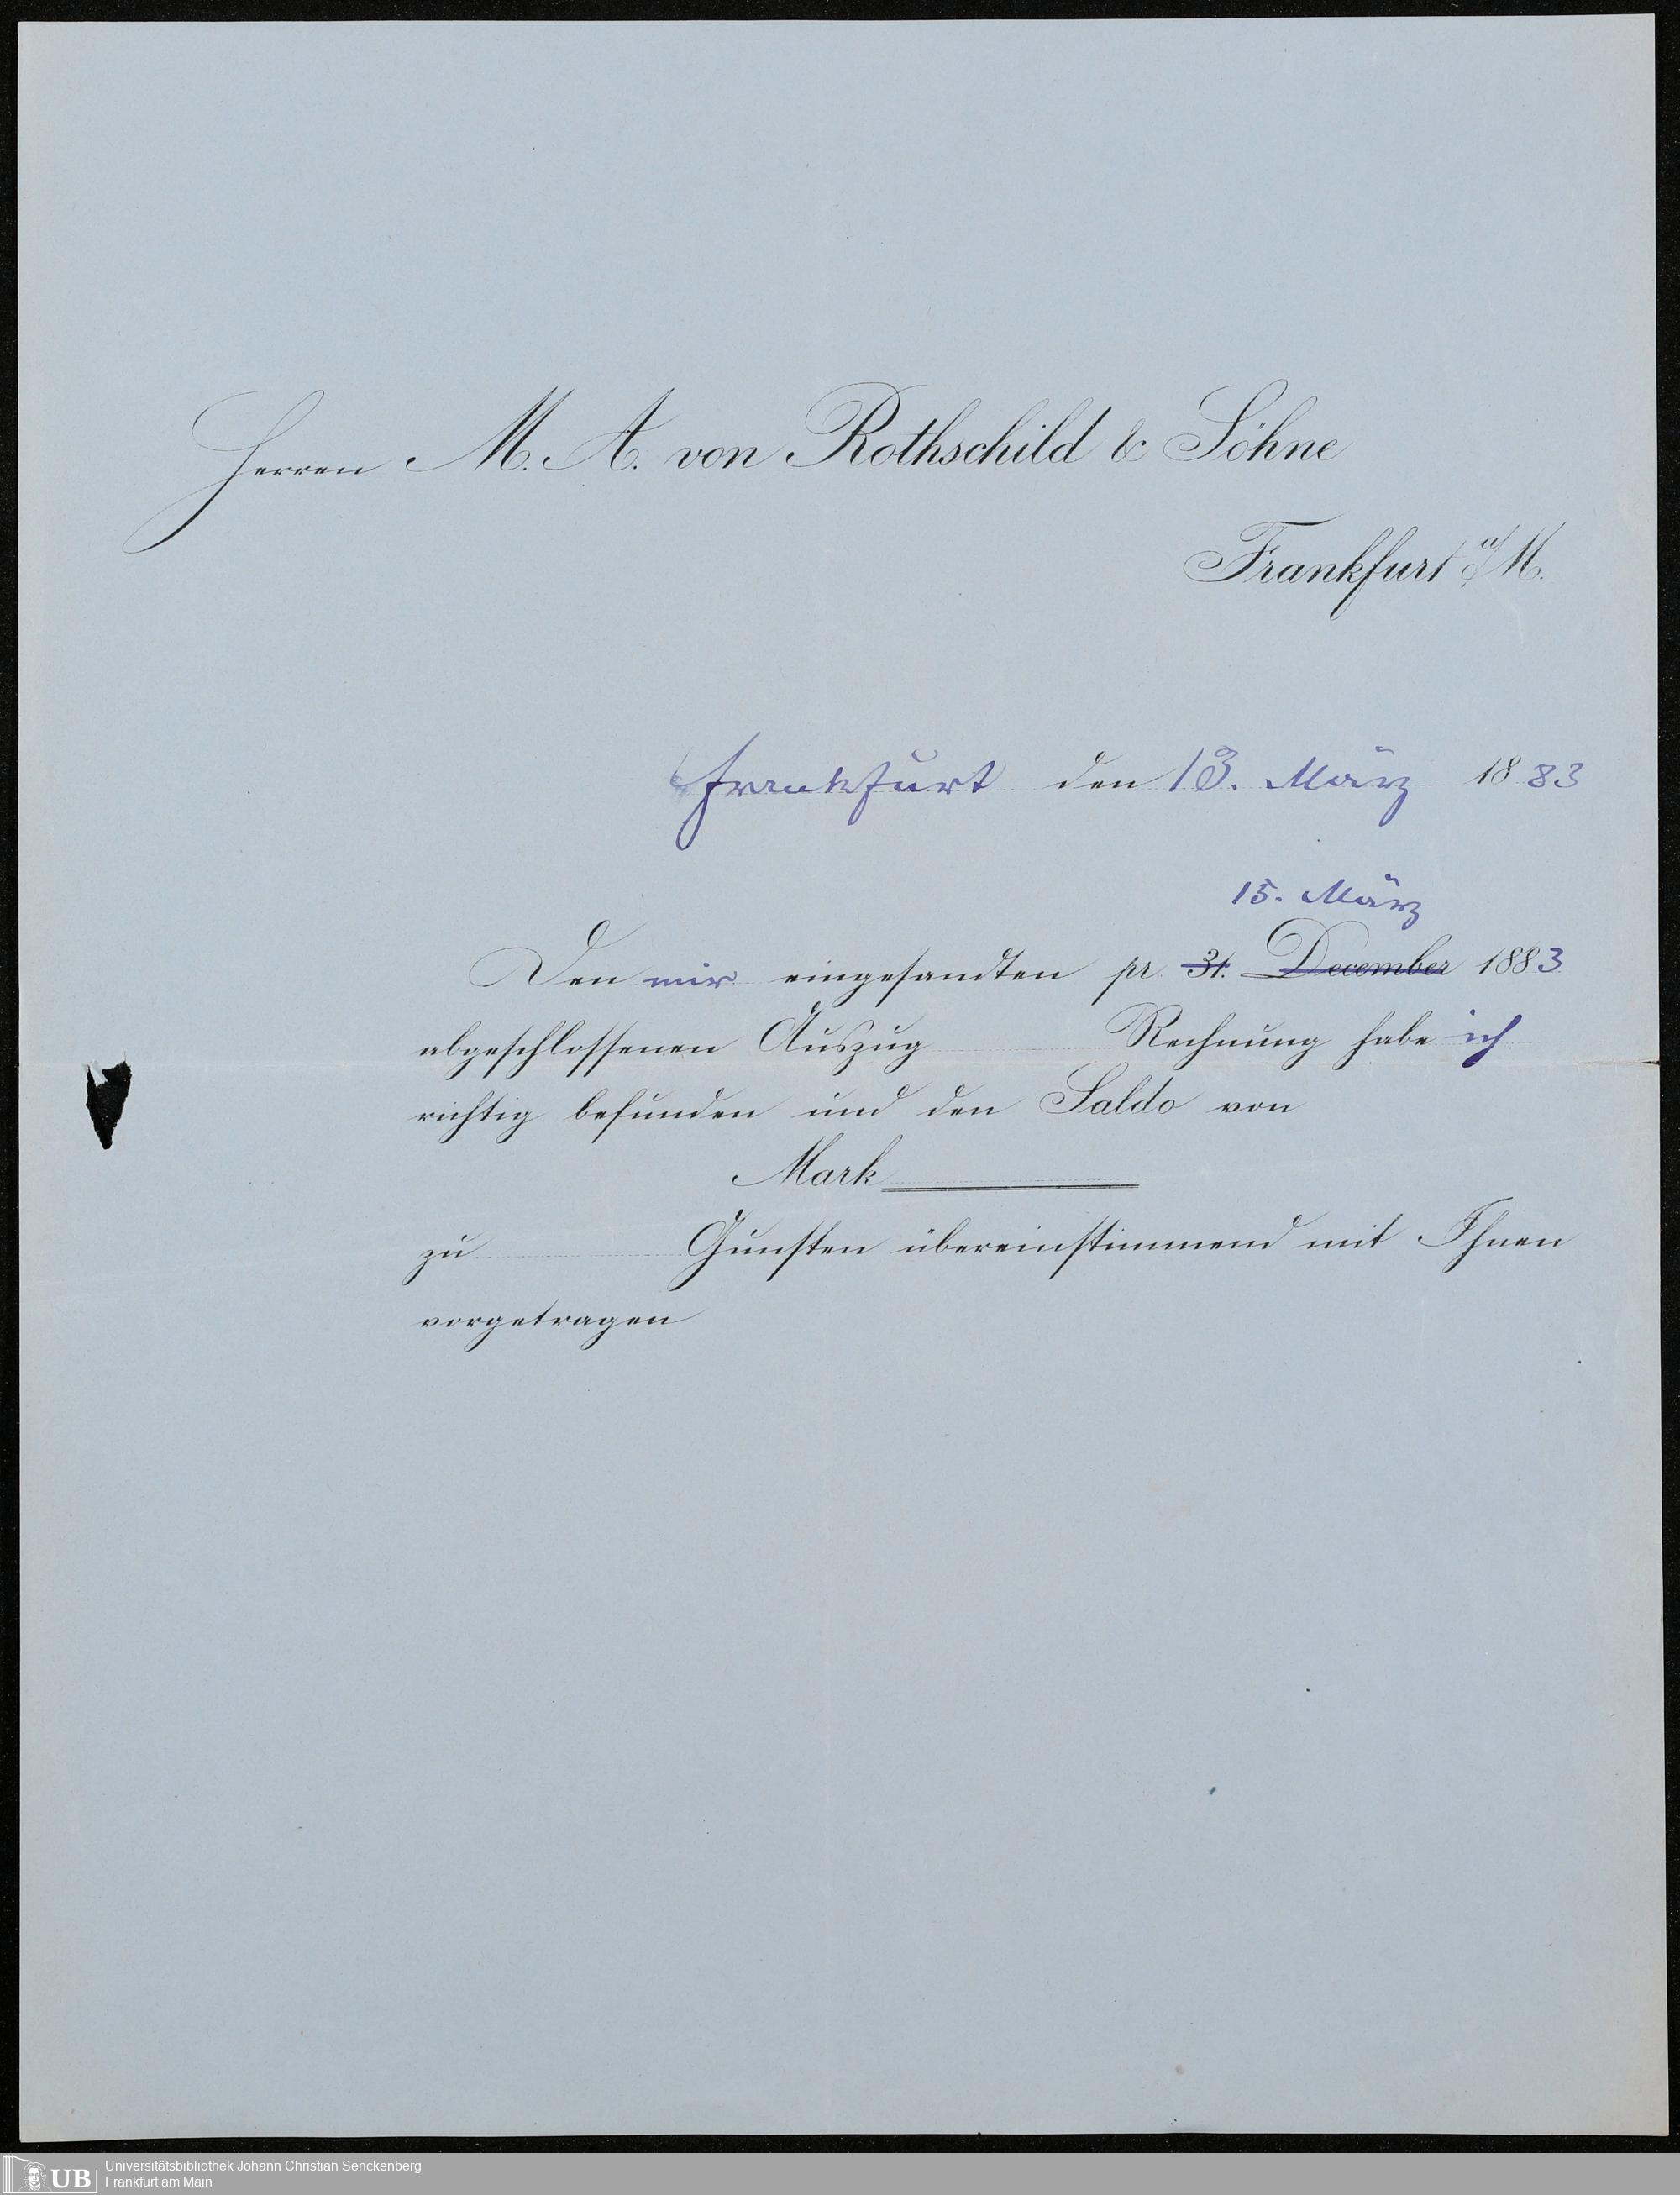 Herren M. A. von Rothschild & Söhne
Frankfurt a/M.
Frankfurt den 13. März 1883
15. März
Den mir eingesandten pr. 31. December 1883
abgeschlossenen Auszug Rechnung habe ich
richtig befunden und den Saldo von
Mark
zu Gunsten übereinstimmend mit Ihnen
vorgetragen
UB
Universitätsbibliothek Johann Christian Senckenberg
Frankfurt am Main